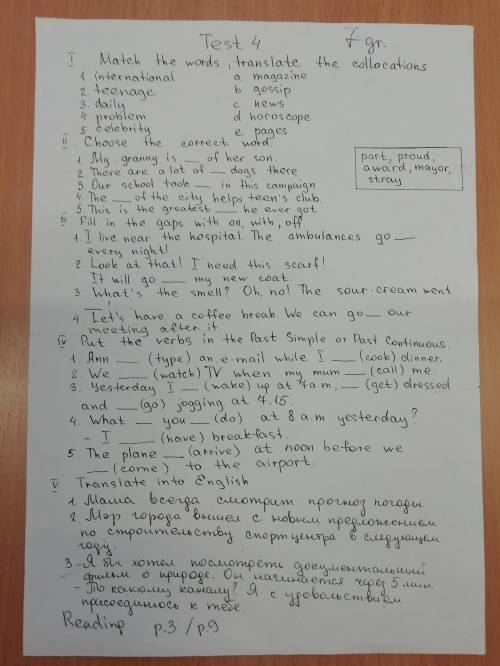 Test 4 7 gr.
I Match the words, translate the collocations
1. international a magazine
2. teenage b gossip
3. daily c news
4. problem d horoscope
5 celebrity e pages
II. Choose the correct word.
1. My granny is __ of her son.
2. There are a lot of __ dogs there
3. Our school took __ in this campaign
4. The __ of the city helps teen's club.
5. This is the greatest __ he ever got.
part, proud,
award, mayor,
stray
III Fill in the gaps with on, with, off.
1. I live near the hospital. The ambulances go __
every night!
2. Look at that! I need this scarf!
It will go __ my new coat.
3. What's the smell? Oh, no! The sour-cream went
__!
4. Let's have a coffee break. We can go __ our
meeting after it.
IV Put the verbs in the Past Simple or Past Continuous.
1. Ann __ (type) an e-mail while I __ (cook) dinner.
2. We __ (watch) TV when my mum __ (call) me.
3. Yesterday I __ (wake) up at 7 a.m, __ (get) dressed
and __ (go) jogging at 7.15.
4. What __ you __ (do) at 8 a.m. yesterday?
- I __ (have) breakfast.
5. The plane __ (arrive) at noon before we
__ (come) to the airport.
V Translate into English
1. Мама всегда смотрит прогноз погоды
2. Мэр города вышел с новым предложением
по строительству спортцентра в следующем
году.
3 - Я бы хотел посмотреть документальный
фильм о природе. Он начинается через 5 мин.
- По какому каналу? Я с удовольствием
присоединюсь к тебе.
Reading p.3 / p.9